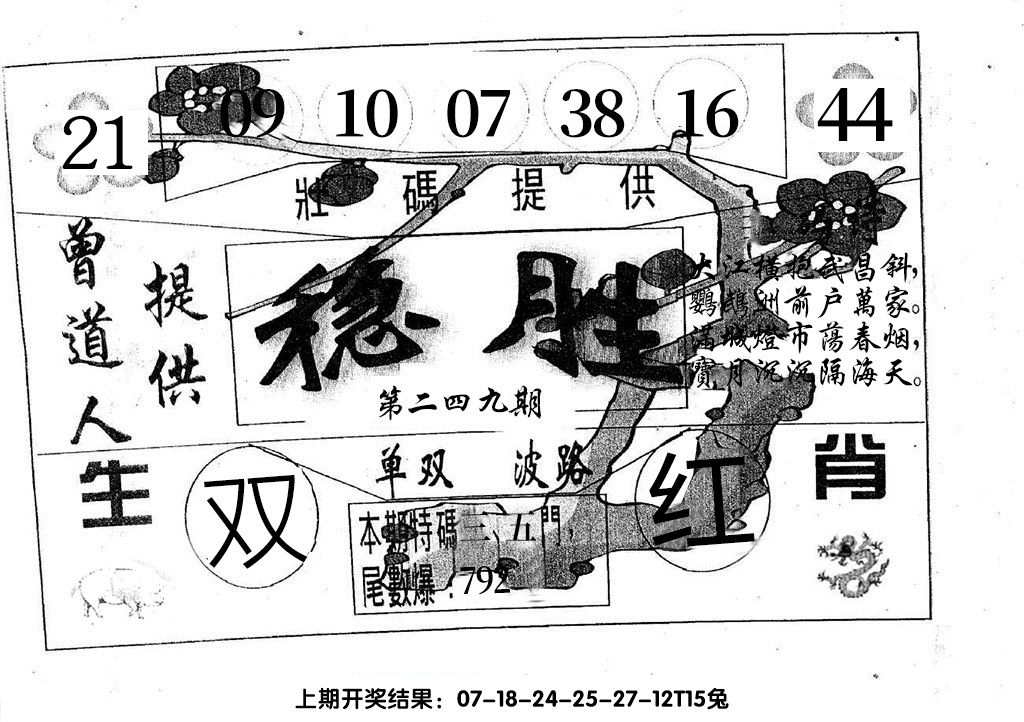 21 09 10 07 38 16 44
壯碼提供
特
曾道人
提供
稳胜
第二四九期
大江橫抱武昌斜，
鸚鵡洲前户萬家。
滿城燈市蕩春烟，
寶月沉沉隔海天。
单双 波路
生
双
红
肖
本期特碼三、五門，
尾數爆：792
上期开奖结果：07-18-24-25-27-12T15兔